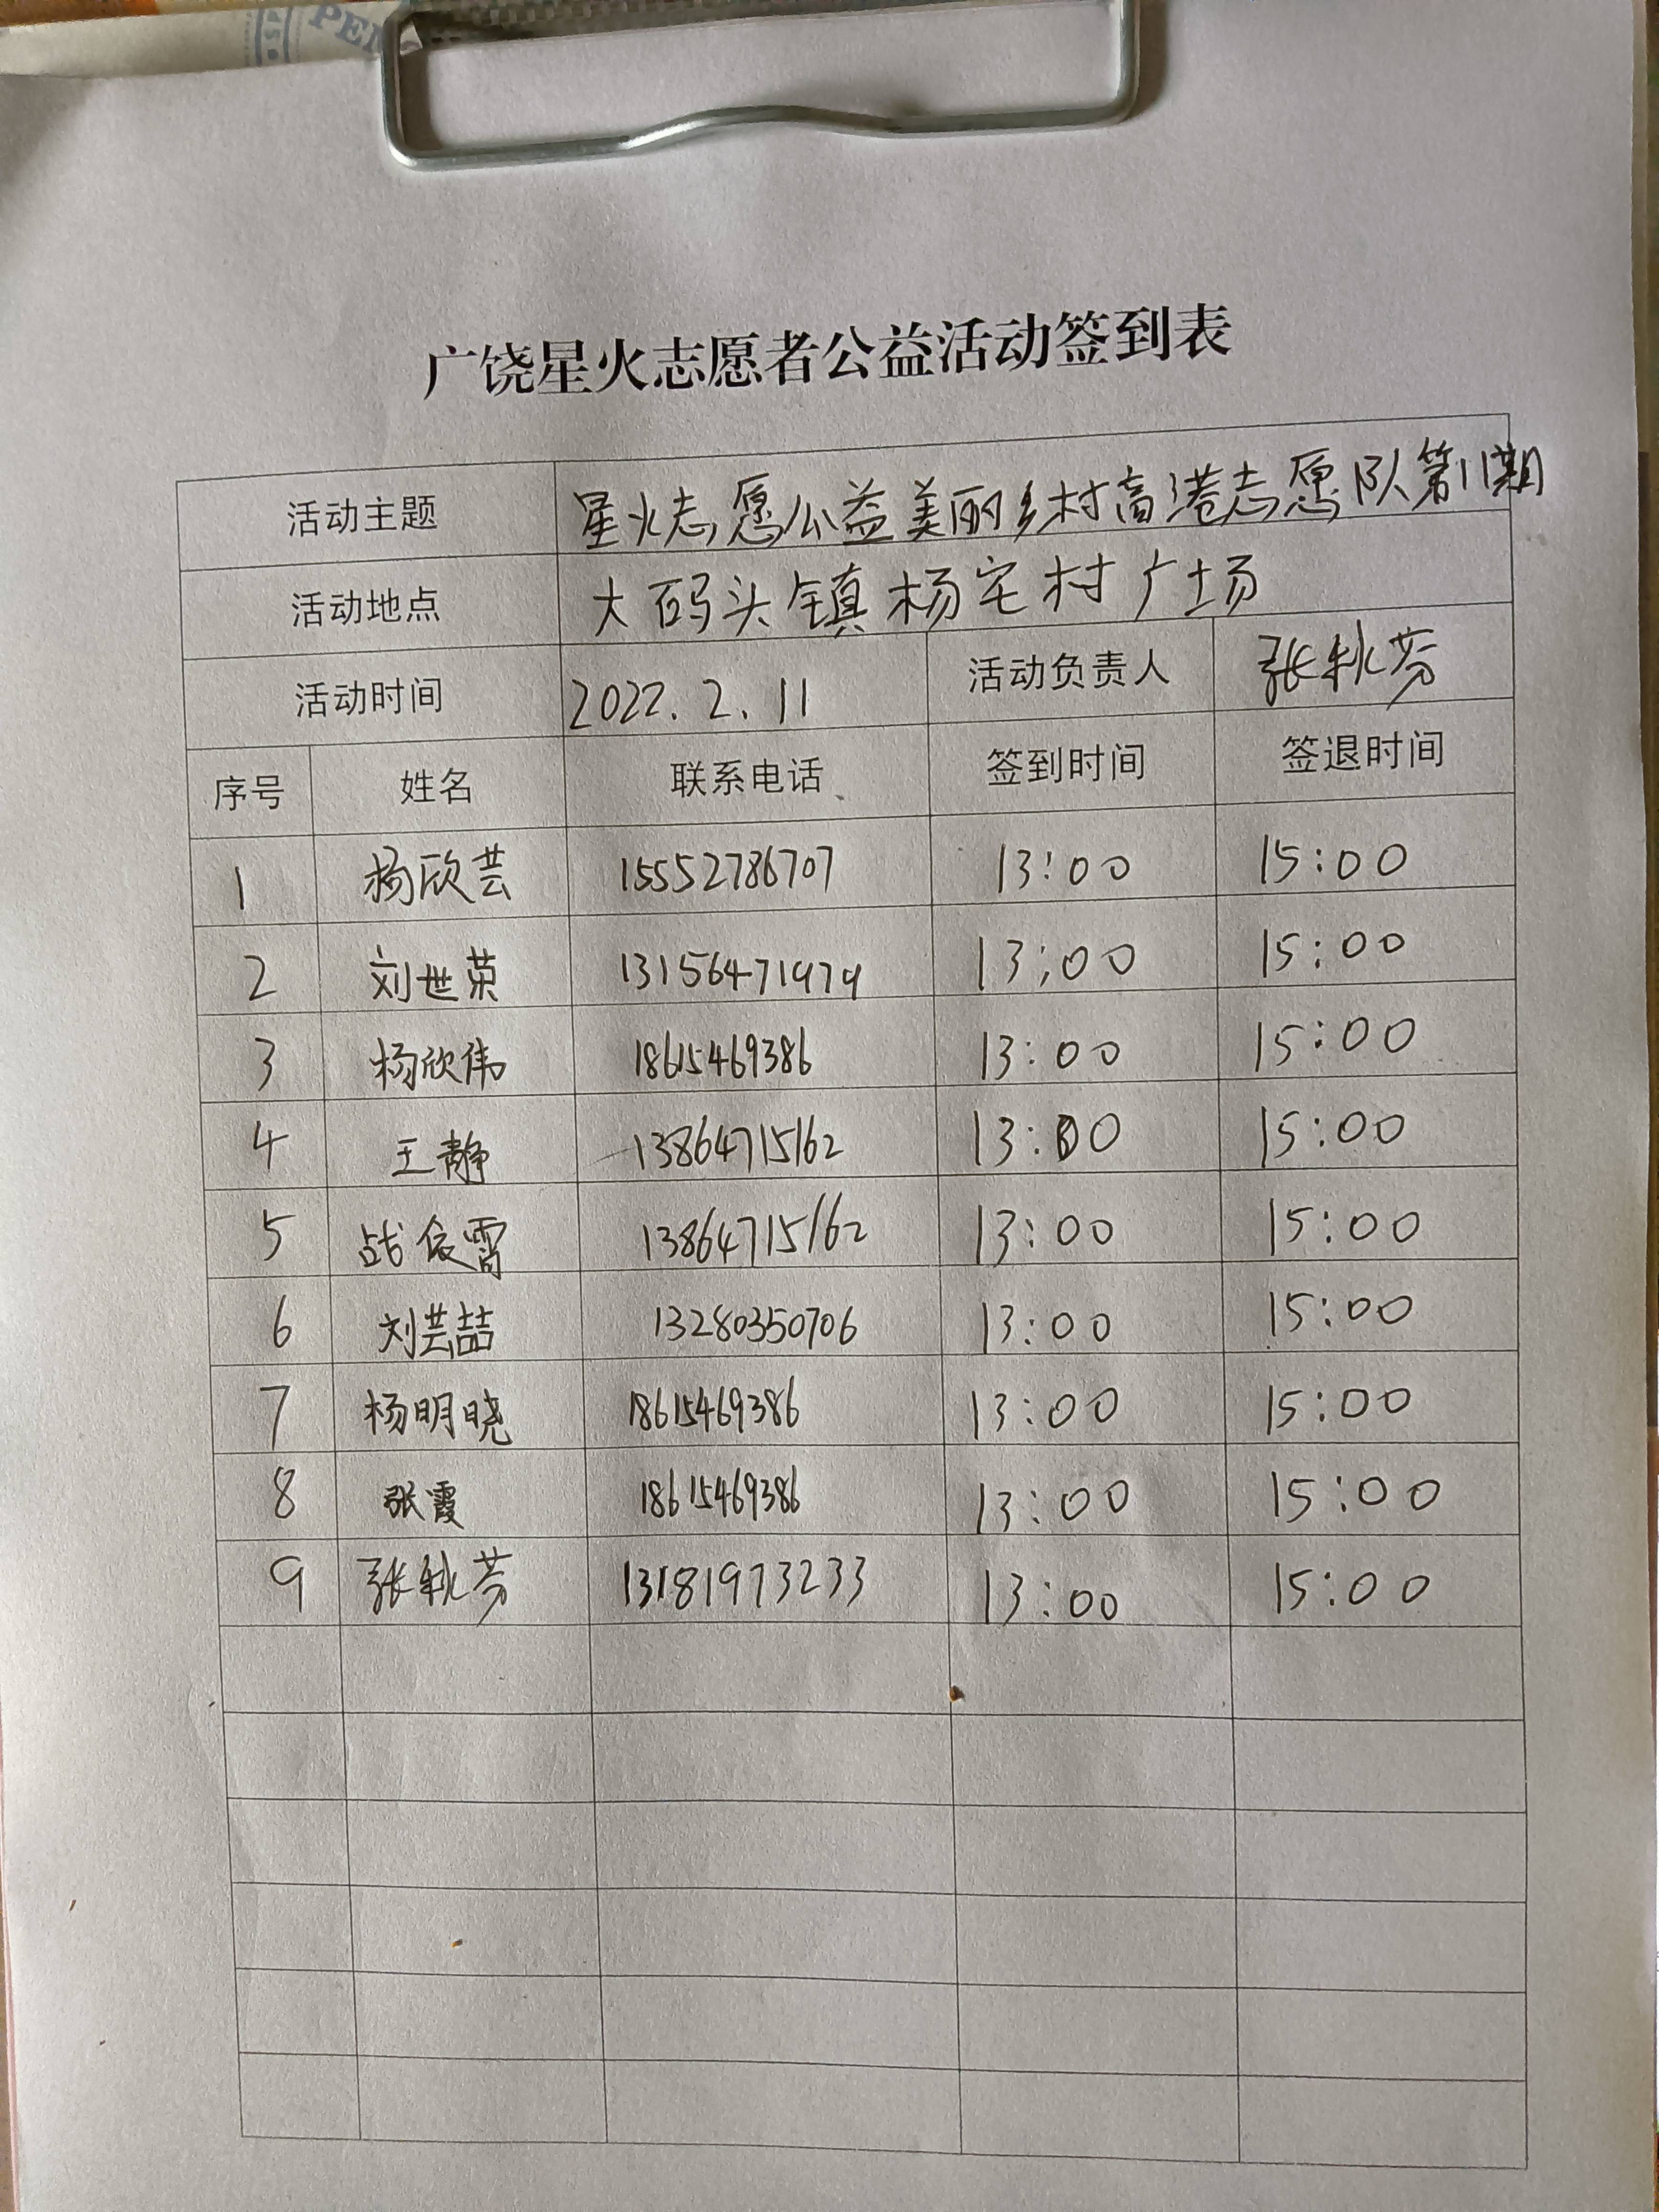 PEN
广饶星火志愿者公益活动签到表
活动主题 星火志愿公益美丽乡村高港志愿队第11期
活动地点 大码头镇杨宅村广场
活动时间 2022.2.11 活动负责人 张秋芳
序号 姓名 联系电话 签到时间 签退时间
1 杨欣芸 15552786707 13:00 15:00
2 刘世荣 13156471979 13:00 15:00
3 杨欣伟 18615469386 13:00 15:00
4 王静 13864715162 13:00 15:00
5 战依霄 13864715162 13:00 15:00
6 刘芸喆 13280350706 13:00 15:00
7 杨明晓 18615469386 13:00 15:00
8 张霞 18615469386 13:00 15:00
9 张秋芳 13181973233 13:00 15:00